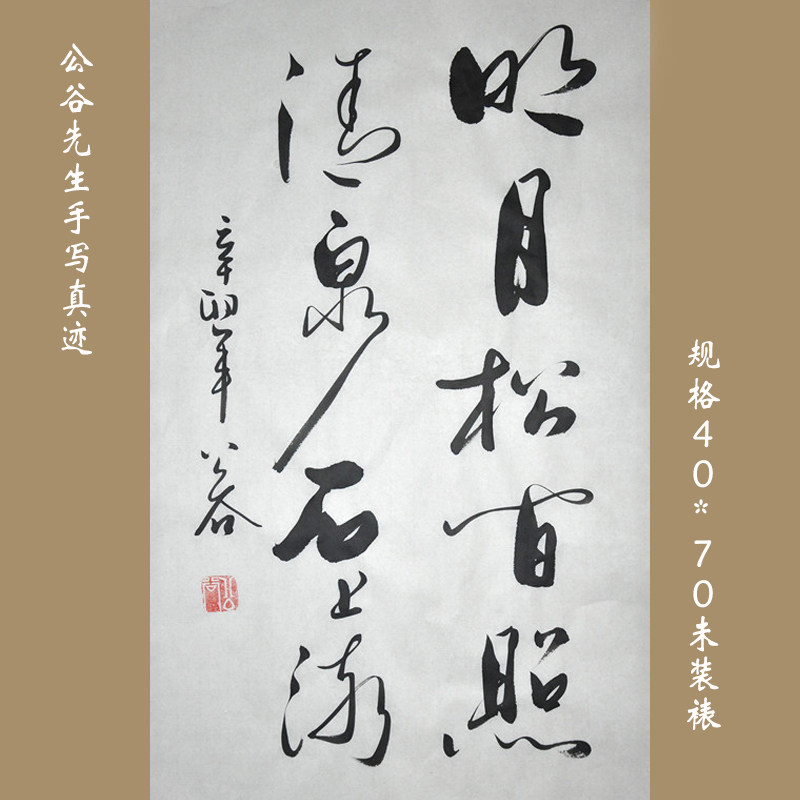 明月松间照
清泉石上流
辛卯年 公谷
公谷
公谷先生手写真迹
规格40*70未装裱